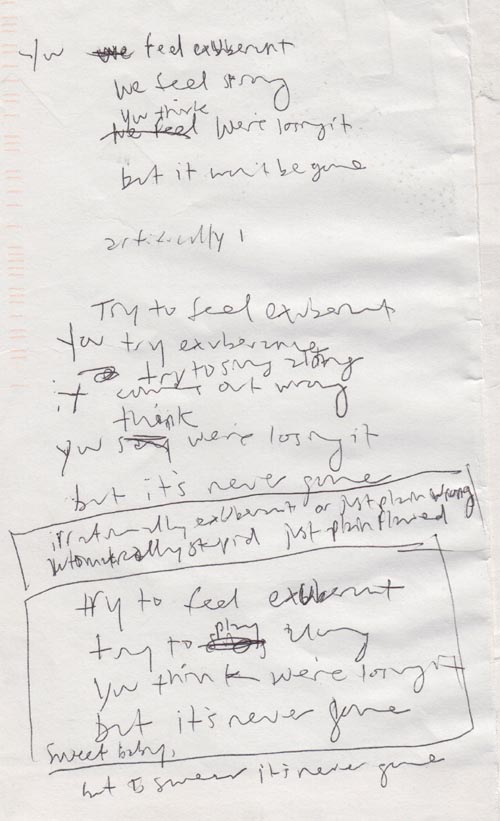 You we feel exuberant
we feel strong
you think
we feel we're losing it
but it won't be gone
Try to feel exuberant
You try exuberance
try to sing along
it comes out wrong
think
you were losing it
but it's never gone
exuberant or just plain wrong
stupid just plain flawed
try to feel exuberant
play
try to along
you think we're losing it
but it's never gone
Sweet baby,
but I swear it's never gone